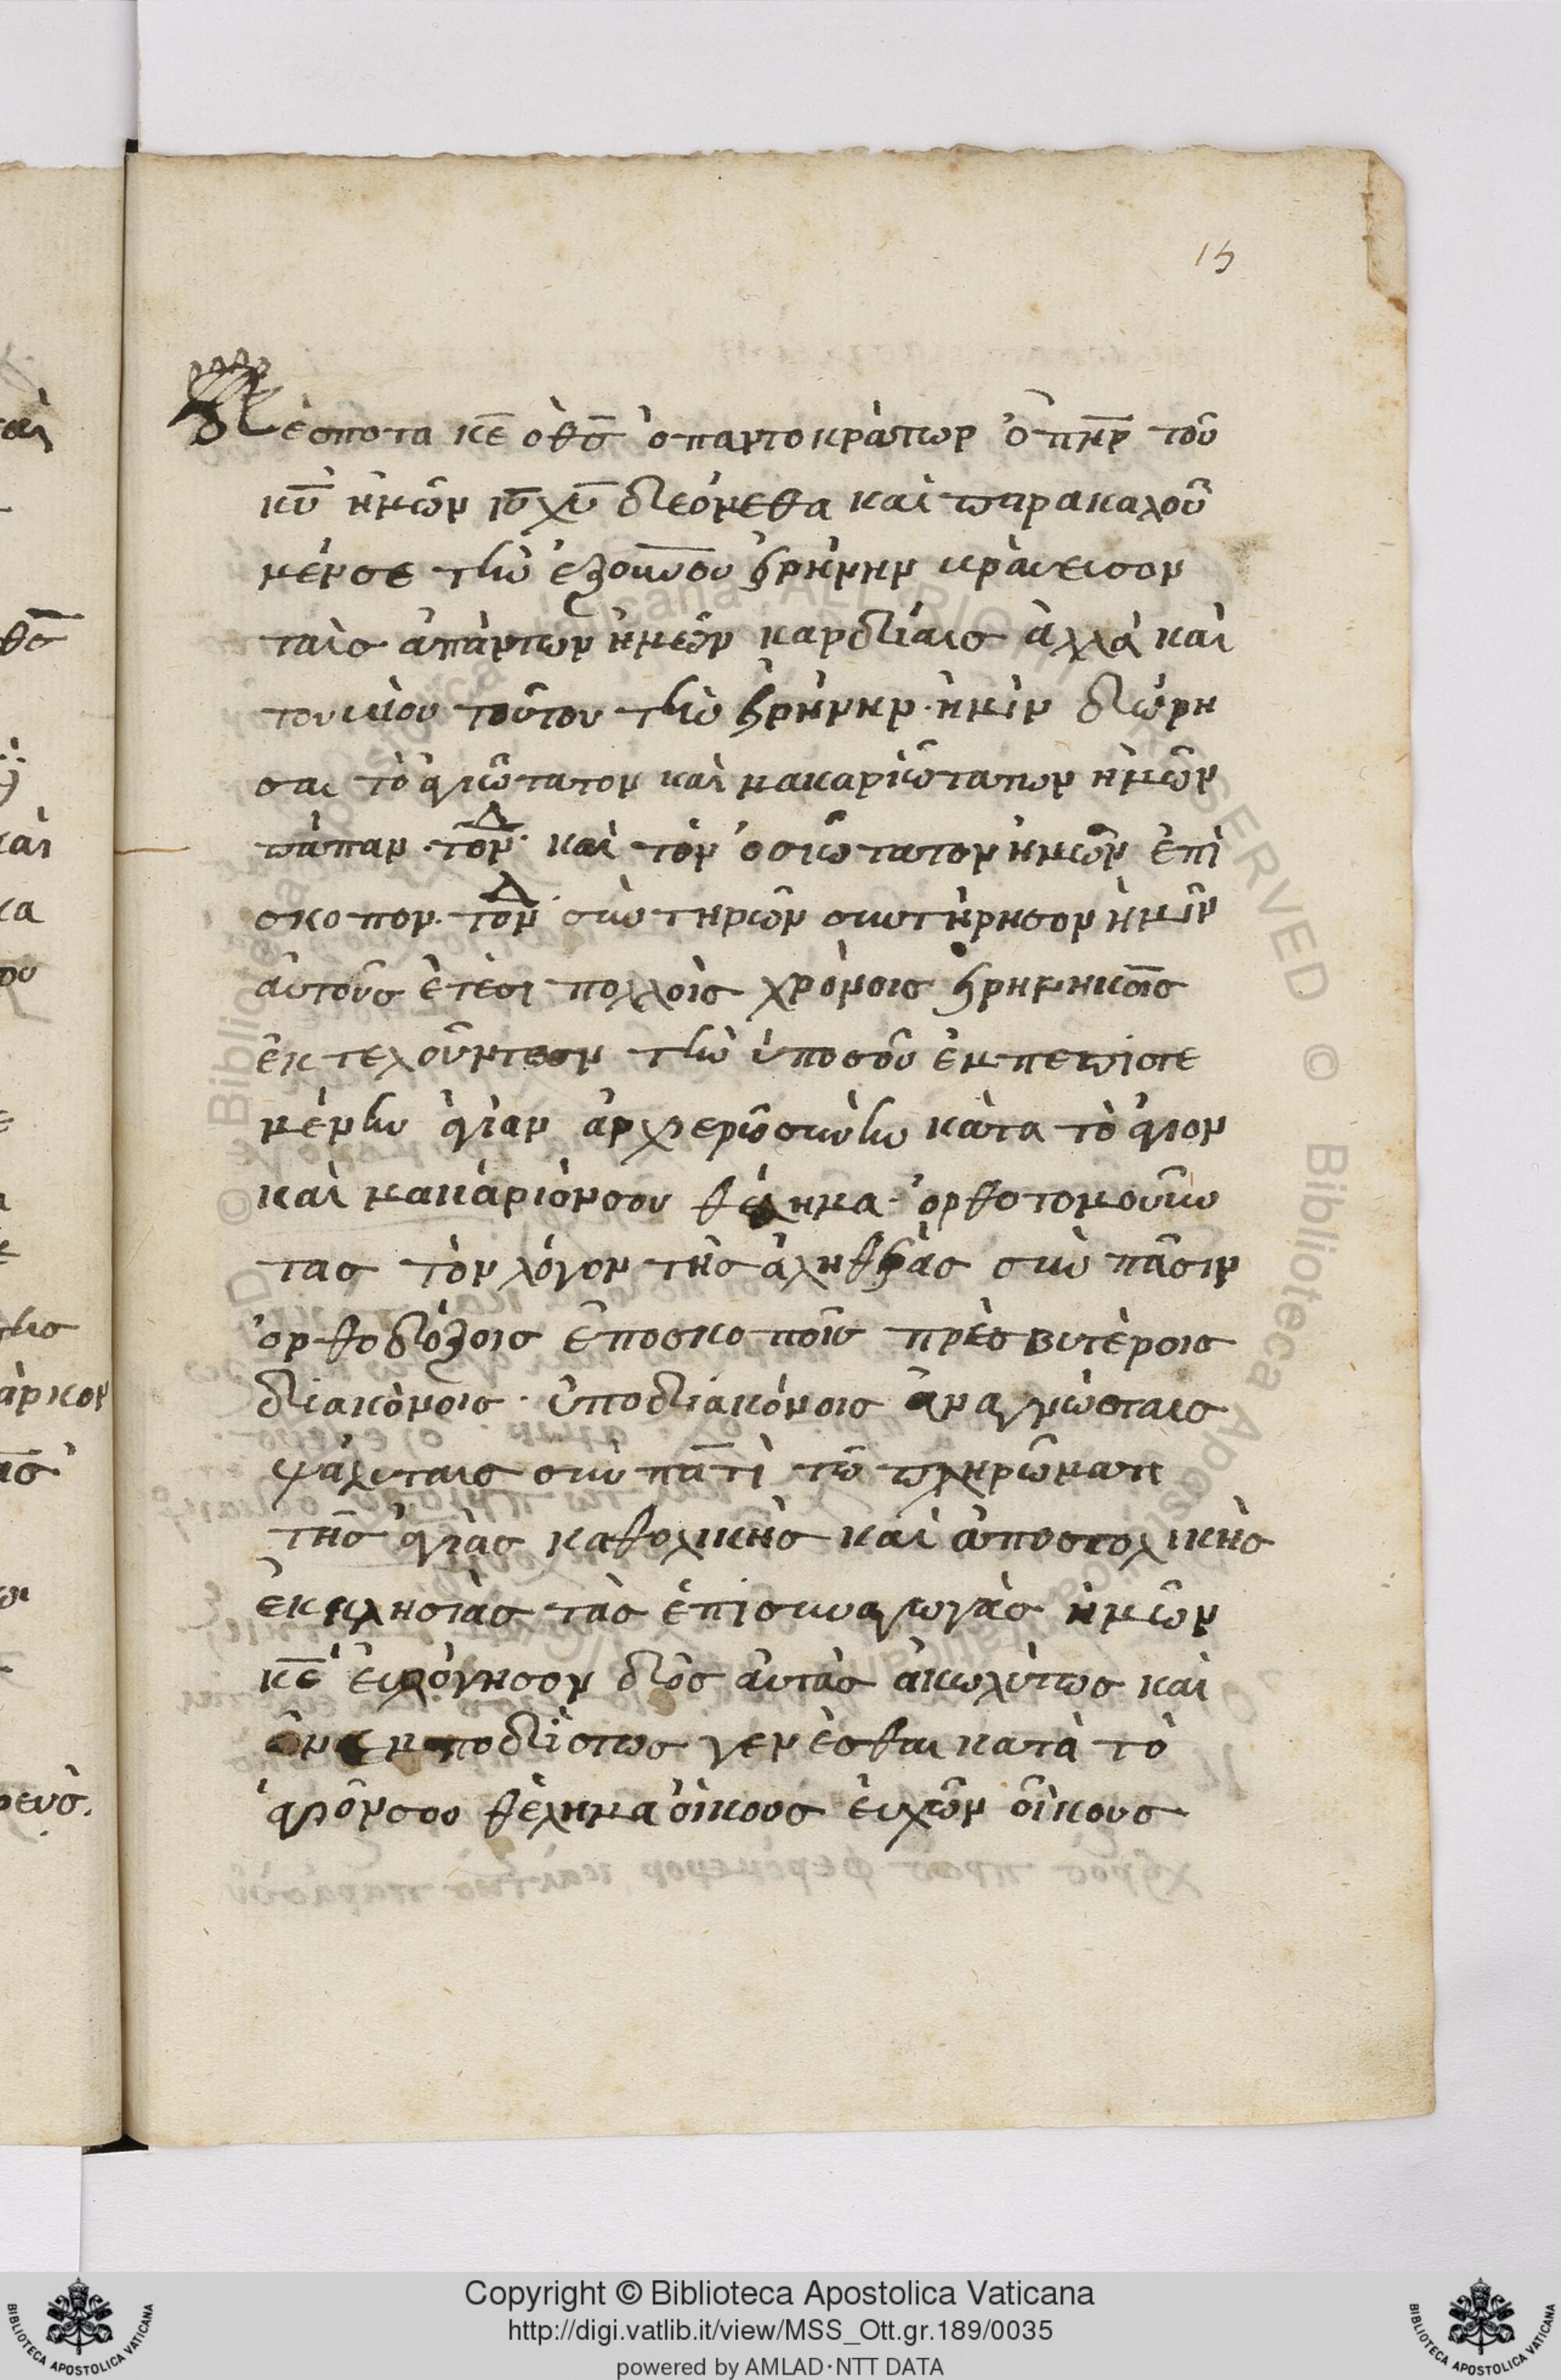 15
Δέσποτα κε ὁ θσ ὁ παντοκράτωρ ὁ πηρ τοῦ
κυ ἡμῶν ιυ χυ δεόμεθα καὶ παρακαλοῦ
μέν σε τὴν ἐξ οὐνου εἰρήνην βράβευσον
ταὶς ἁπάντων ἡμῶν καρδίαις ἀλλὰ καὶ
τοῦ βίου τούτου τὴν εἰρήνην ἡμὶν δώρη
σαι τὸ ἁγιώτατον καὶ μακαριώτατων ἡμῶν
πάπαν τὸν Δ καὶ τὸν ὁσιώτατον ἡμῶν ἐπὶ
σκοπον τὸν Δ συντηρῶν συντήρησον ἡμῖν
αὐτοὺς ἔτεσι πολλοὶς χρόνοις εἰρηνικοῖς
ἐκτελοῦντεσν τὴν ὑπὸ σοῦ ἐμπεπιστε
μένην ἁγίαν ἀρχιερωσύνην κάτα τὸ ἅγιον
καὶ μακάριόν σου θέλημα ὀρθοτομοῦν
τας τὸν λόγον τῆς ἀληθείας σὺν πᾶσιν
ὀρθοδόξοις ἐποσκοποῖς πρεσβυτέροις
διακόνοις ὑποδιακόνοις ἀναγνώσταις
ψάλταις σὺν παντὶ τῶ πληρῶματι
τῆς ἁγίας καθολικῆς καὶ ἀποστολικῆς
ἐκκλησίας τὰς ἐπισυναγωγὰς ἡμῶν
κε εὐλόγησον δὸς αὐτὰς ἀκωλύτως καὶ
ἀνεμποδίστως γενέσθαι κατὰ τὸ
ἅγιόν σου θέλημα οἴκους εὐχῶν οἴκους
Copyright © Biblioteca Apostolica Vaticana
http://digi.vatlib.it/view/MSS_Ott.gr.189/0035
powered by AMLAD·NTT DATA